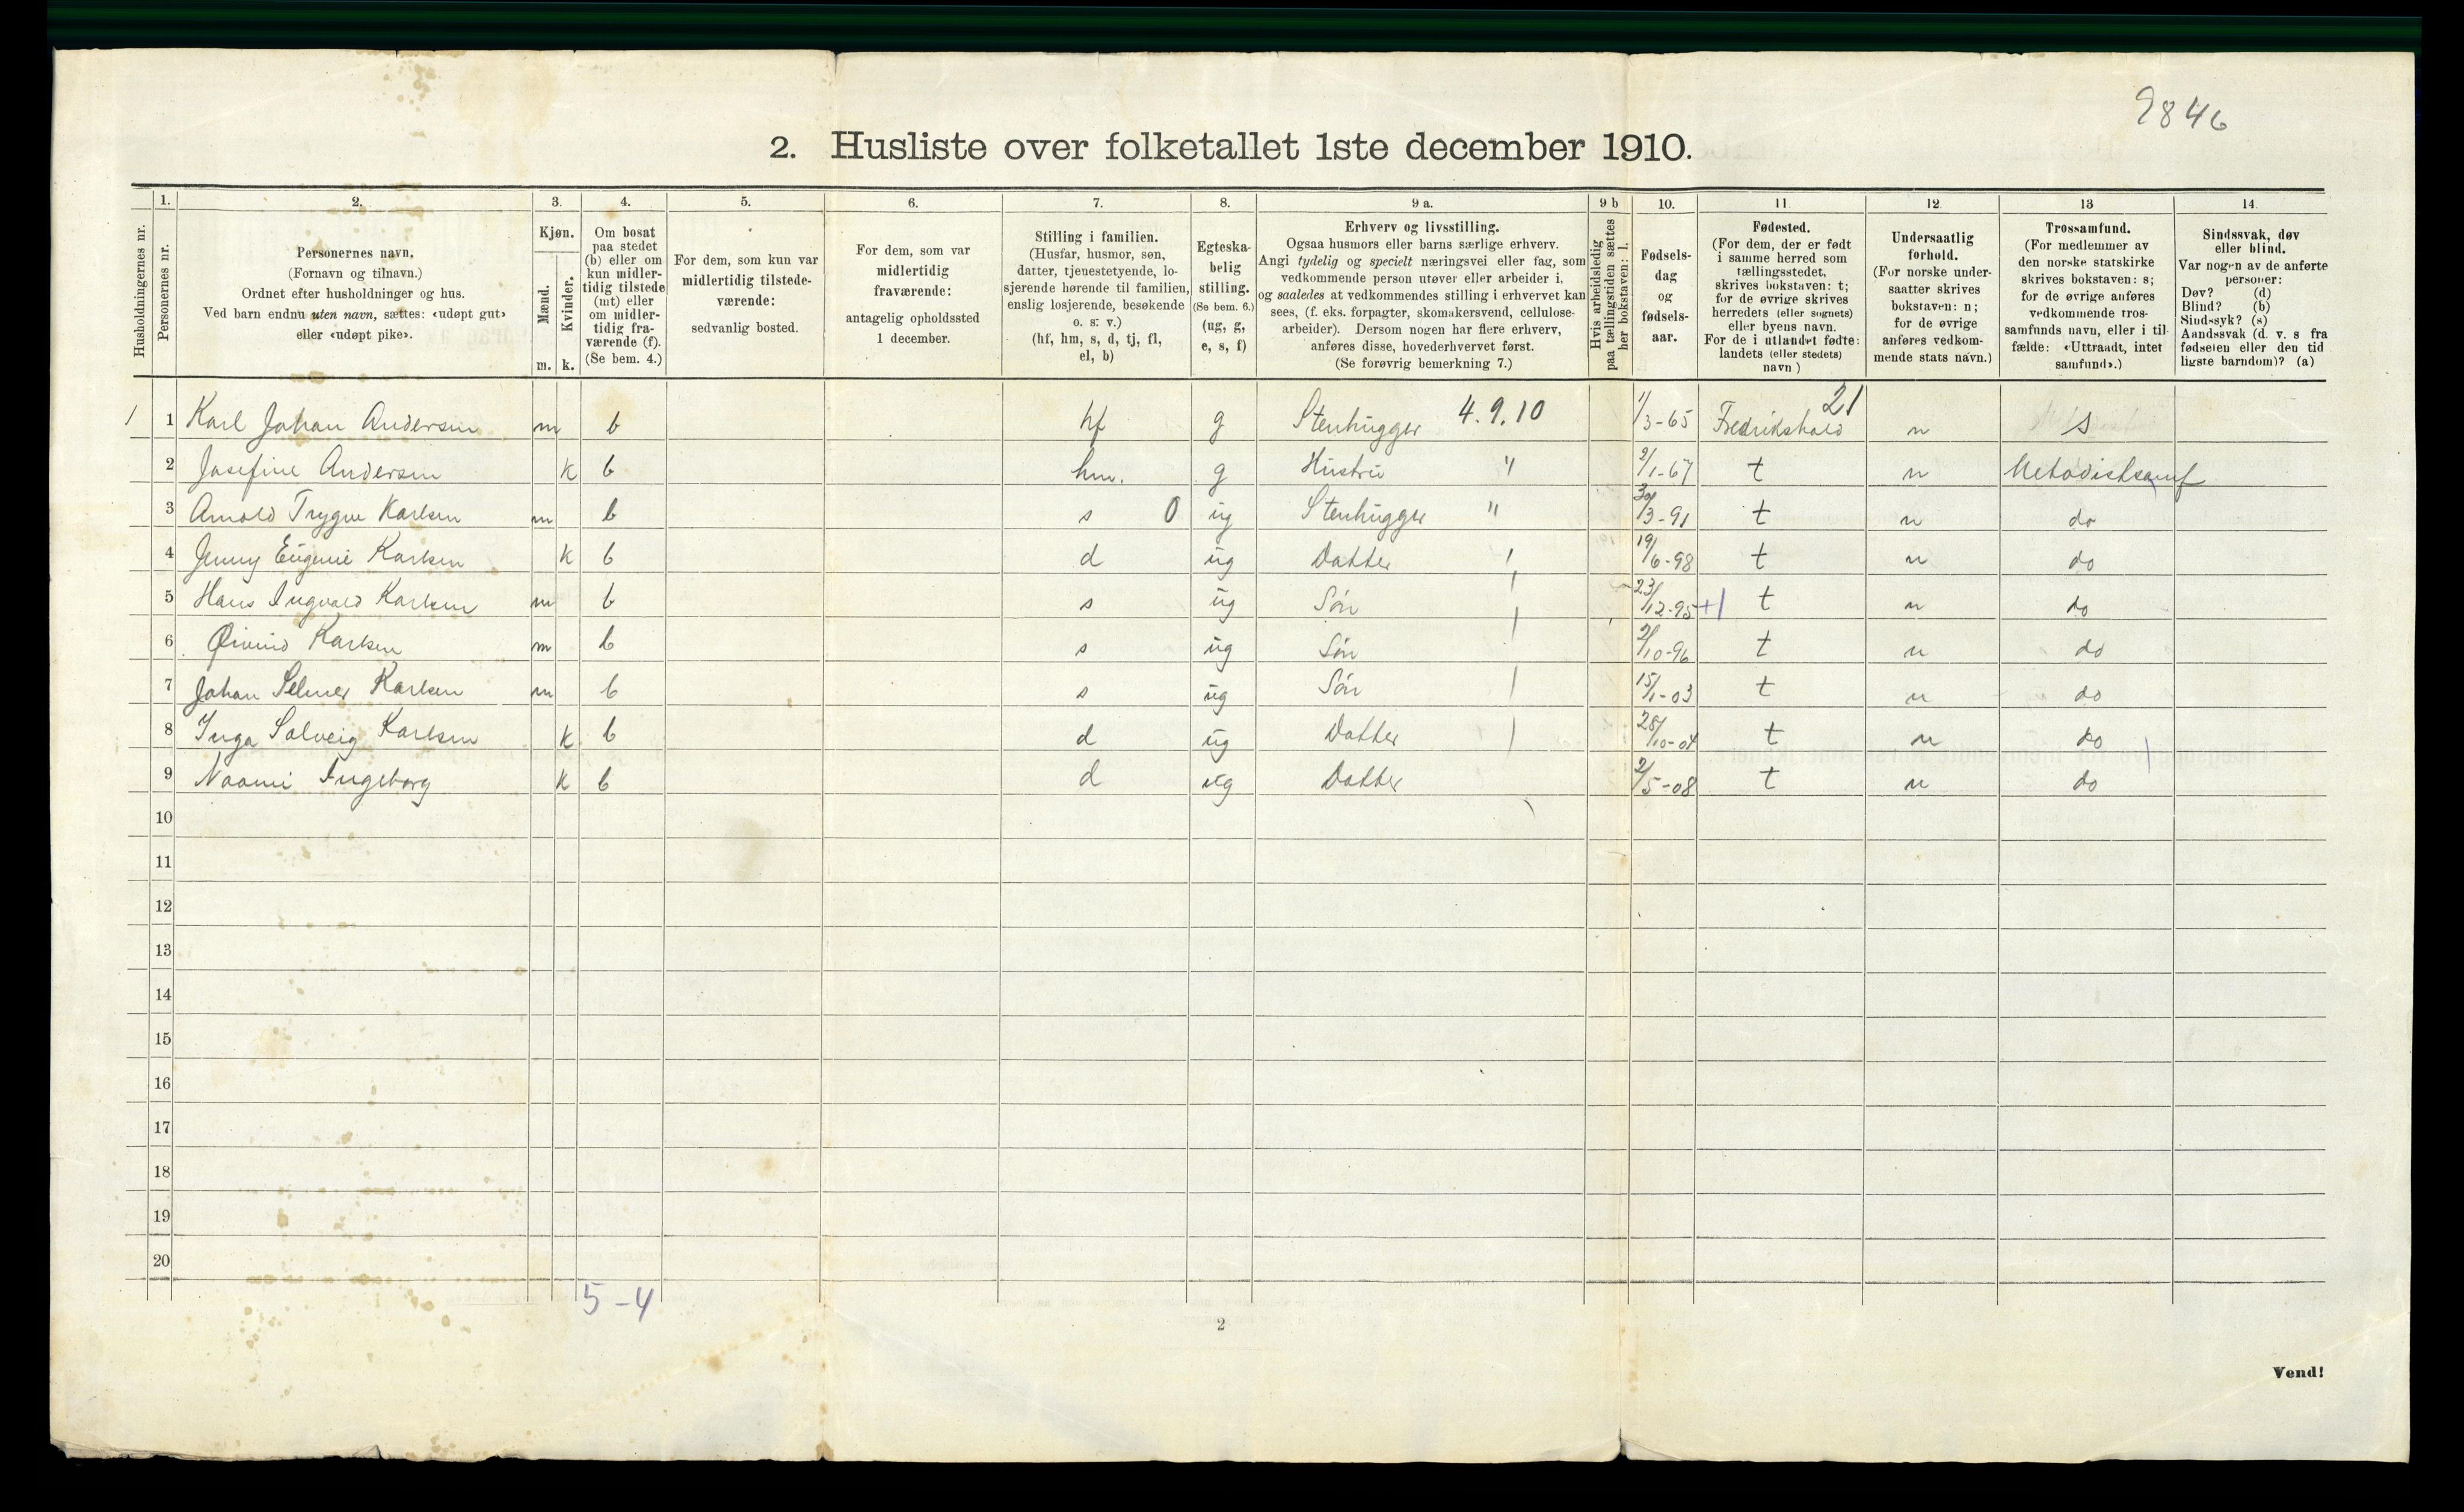 9846
2. Husliste over folketallet 1ste december 1910.
Husholdningernes nr.
1.
Personernes nr.
2.
Personernes navn.
(Fornavn og tilnavn.)
Ordnet efter husholdninger og hus.
Ved barn endnu uten navn, sættes: «udøpt gut»
eller «udøpt pike».
3.
Kjøn.
Mænd.
Kvinder.
m. k.
4.
Om bosat
paa stedet
(b) eller om
kun midler-
tidig tilstede
(mt) eller
om midler-
tidig fra-
værende (f).
(Se bem. 4.)
5.
For dem, som kun var
midlertidig tilstede-
værende:
sedvanlig bosted.
6.
For dem, som var
midlertidig
fraværende:
antagelig opholdssted
1 december.
7.
Stilling i familien.
(Husfar, husmor, søn,
datter, tjenestetyende, lo-
sjerende hørende til familien,
enslig losjerende, besøkende
o. s. v.)
(hf, hm, s, d, tj, fl,
el, b)
8.
Egteska-
belig
stilling.
(Se bem. 6.)
(ug, g,
e, s, f)
9 a.
Erhverv og livsstilling.
Ogsaa husmors eller barns særlige erhverv.
Angi tydelig og specielt næringsvei eller fag, som
vedkommende person utøver eller arbeider i,
og saaledes at vedkommendes stilling i erhvervet kan
sees, (f. eks. forpagter, skomakersvend, cellulose-
arbeider). Dersom nogen har flere erhverv,
anføres disse, hovederhvervet først.
(Se forøvrig bemerkning 7.)
9 b
Hvis arbeidsledig
paa tællingstiden sættes
her bokstaven: l.
10.
Fødsels-
dag
og
fødsels-
aar.
11.
Fødested.
(For dem, der er født
i samme herred som
tællingsstedet,
skrives bokstaven: t;
for de øvrige skrives
herredets (eller sognets)
eller byens navn.
For de i utlandet fødte:
landets (eller stedets)
navn)
12.
Undersaatlig
forhold.
(For norske under-
saatter skrives
bokstaven: n;
for de øvrige
anføres vedkom-
mende stats navn.)
13
Trossamfund.
(For medlemmer av
den norske statskirke
skrives bokstaven: s;
for de øvrige anføres
vedkommende tros-
samfunds navn, eller i til-
fælde: «Uttraadt, intet
samfund».)
14.
Sindssvak, døv
eller blind.
Var nogen av de anførte
personer:
Døv? (d)
Blind? (b)
Sindssyk? (s)
Aandssvak (d. v. s fra
fødselen eller den tid
ligste barndom)? (a)
1 1 Karl Johan Andersen m b hf g Stenhugger 4.9.10 1/3-65 Fredrikshald 21 n s
2 Josefine Andersen k b hm. g Hustru " 2/1-67 t n Metodistsamf
3 Arnold Trygve Karlsen m b s 0 ug Stenhugger " 30/3-91 t n do
4 Jenny Eugenie Karlsen k b d ug Datter 19/6-98 t n do
5 Hans Ingvald Karlsen m b s ug Søn 23/12-95 +1 t n do
6 Øivind Karlsen m b s ug Søn 2/10-96 t n do
7 Johan Selmer Karlsen m b s ug Søn 15/1-03 t n do
8 Inga Solveig Karlsen k b d ug Datter 28/10-04 t n do
9 Naomi Ingeborg k b d ug Datter 2/5-08 t n do
10
11
12
13
14
15
16
17
18
19
20
5-4
2
Vend!